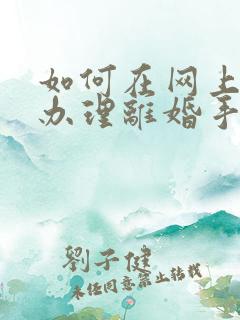 如何在网上
办理離婚手
劉子健
未经同意禁止转载